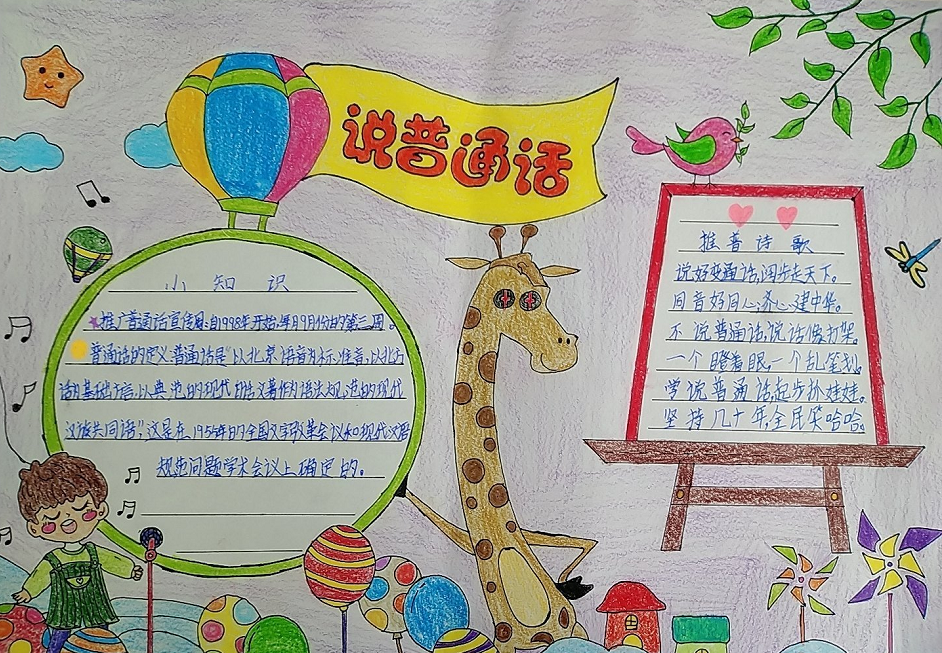 说普通话
小知识
推广普通话宣传周:自1998年开始,每年9月份的第三周。
普通话的定义:普通话是"以北京语音为标准音,以北方
话为基础方言,以典范的现代白话文著作为语法规范的现代
汉族共同语",这是在1955年的全国文字改革会议和现代汉语
规范问题学术会议上确定的。
推普诗歌
说好普通话,阔步走天下。
同音好同心,齐心建中华。
不说普通话,说话像打架。
一个瞪着眼,一个乱笔划。
学说普通话起步扒娃娃。
坚持几十年,全民笑哈哈。